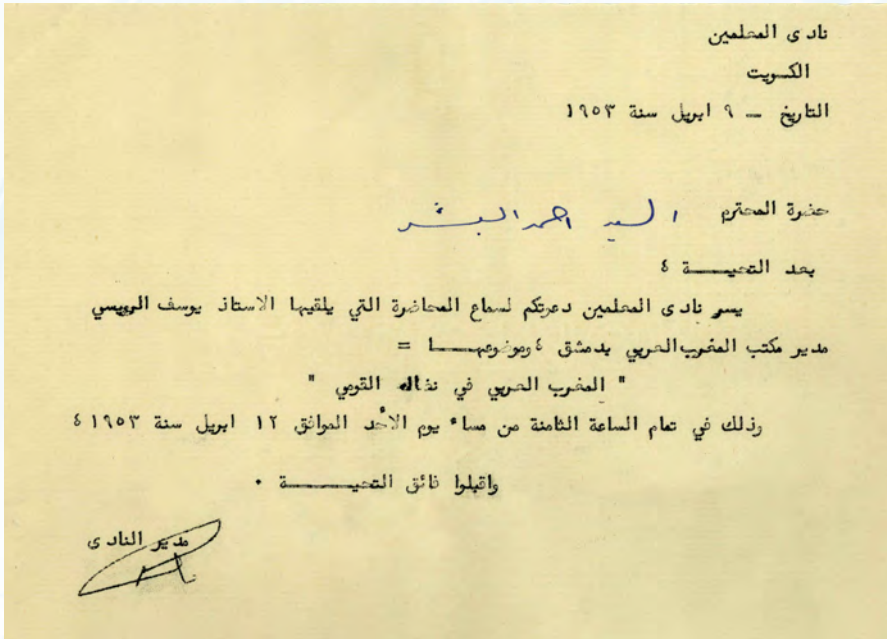 نادى المعلمين
الكويت
التاريخ – ٩ ابريل سنة ١٩٥٣
حضرة المحترم السيد احمد البشر
بعد التحيـــــة ؛
يسر نادى المعلمين دعوتكم لسماع المحاضرة التي يلقيها الاستاذ يوسف الرويسي
مدير مكتب المغرب العربي بدمشق ؛ وموضوعهـــا =
" المغرب العربي في نضاله القومي "
وذلك في تمام الساعة الثامنة من مساء يوم الأحد الموافق ١٢ ابريل سنة ١٩٥٣ ؛
واقبلوا فائق التحيـــــة .
مدير النادى